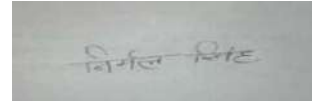 निर्मल सिंह